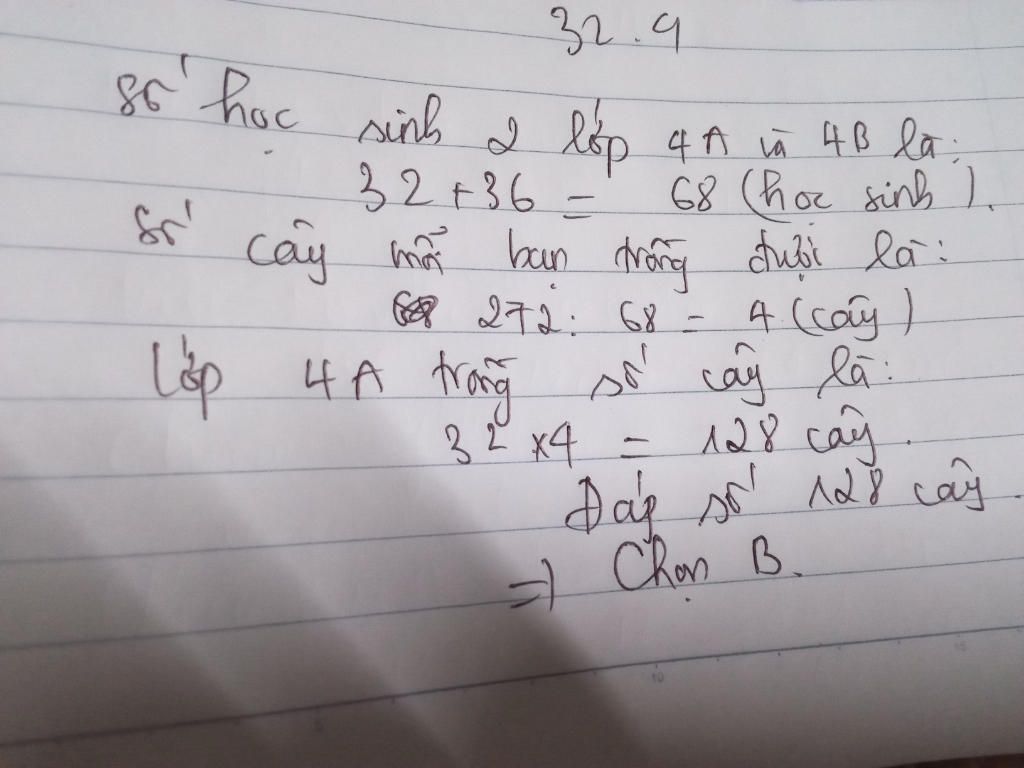 32.9
Số học sinh 2 lớp 4A và 4B là:
32 + 36 = 68 (học sinh).
Số cây mỗi bạn trồng được là:
272: 68 = 4 (cây)
Lớp 4A trồng số cây là:
32 x 4 = 128 cây.
Đáp số 128 cây
=> Chọn B.
10
15